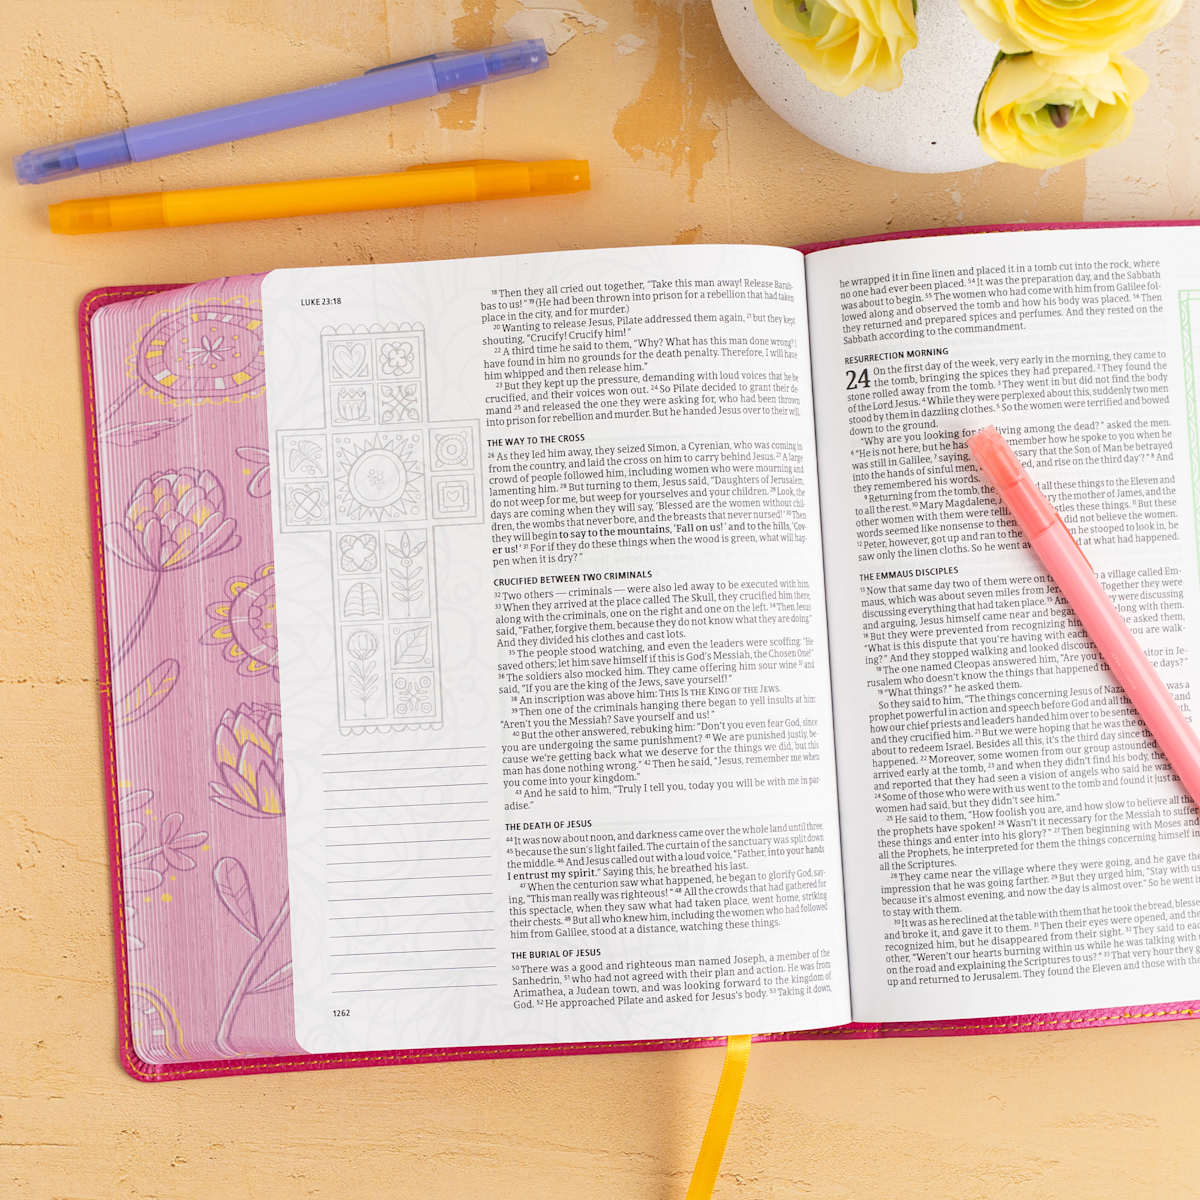 LUKE 23:18
18 Then they all cried out together, "Take this man away! Release Barab-
bas to us!" 19 (He had been thrown into prison for a rebellion that had taken
place in the city, and for murder.)
20 Wanting to release Jesus, Pilate addressed them again, 21 but they kept
shouting, "Crucify! Crucify him!"
22 A third time he said to them, "Why? What has this man done wrong? I
have found in him no grounds for the death penalty. Therefore, I will have
him whipped and then release him."
23 But they kept up the pressure, demanding with loud voices that he be
crucified, and their voices won out. 24 So Pilate decided to grant their de-
mand 25 and released the one they were asking for, who had been thrown
into prison for rebellion and murder. But he handed Jesus over to their will.
THE WAY TO THE CROSS
26 As they led him away, they seized Simon, a Cyrenian, who was coming in
from the country, and laid the cross on him to carry behind Jesus. 27 A large
crowd of people followed him, including women who were mourning and
lamenting him. 28 But turning to them, Jesus said, "Daughters of Jerusalem,
do not weep for me, but weep for yourselves and your children. 29 Look, the
days are coming when they will say, 'Blessed are the women without chil-
dren, the wombs that never bore, and the breasts that never nursed!' 30 Then
they will begin to say to the mountains, 'Fall on us!' and to the hills, 'Cov-
er us!' 31 For if they do these things when the wood is green, what will hap-
pen when it is dry?"
CRUCIFIED BETWEEN TWO CRIMINALS
32 Two others — criminals — were also led away to be executed with him.
33 When they arrived at the place called The Skull, they crucified him there,
along with the criminals, one on the right and one on the left. 34 Then Jesus
said, "Father, forgive them, because they do not know what they are doing."
And they divided his clothes and cast lots.
35 The people stood watching, and even the leaders were scoffing: "He
saved others; let him save himself if this is God's Messiah, the Chosen One!"
36 The soldiers also mocked him. They came offering him sour wine 37 and
said, "If you are the king of the Jews, save yourself!"
38 An inscription was above him: THIS IS THE KING OF THE JEWS.
39 Then one of the criminals hanging there began to yell insults at him:
"Aren't you the Messiah? Save yourself and us!"
40 But the other answered, rebuking him: "Don't you even fear God, since
you are undergoing the same punishment? 41 We are punished justly, be-
cause we're getting back what we deserve for the things we did, but this
man has done nothing wrong." 42 Then he said, "Jesus, remember me when
you come into your kingdom."
43 And he said to him, "Truly I tell you, today you will be with me in par-
adise."
THE DEATH OF JESUS
44 It was now about noon, and darkness came over the whole land until three,
45 because the sun's light failed. The curtain of the sanctuary was split down
the middle. 46 And Jesus called out with a loud voice, "Father, into your hands
I entrust my spirit." Saying this, he breathed his last.
47 When the centurion saw what happened, he began to glorify God, say-
ing, "This man really was righteous!" 48 All the crowds that had gathered for
this spectacle, when they saw what had taken place, went home, striking
their chests. 49 But all who knew him, including the women who had followed
him from Galilee, stood at a distance, watching these things.
THE BURIAL OF JESUS
50 There was a good and righteous man named Joseph, a member of the
Sanhedrin, 51 who had not agreed with their plan and action. He was from
Arimathea, a Judean town, and was looking forward to the kingdom of
God. 52 He approached Pilate and asked for Jesus's body. 53 Taking it down,
1262
he wrapped it in fine linen and placed it in a tomb cut into the rock, where
no one had ever been placed. 54 It was the preparation day, and the Sabbath
was about to begin. 55 The women who had come with him from Galilee fol-
lowed along and observed the tomb and how his body was placed. 56 Then
they returned and prepared spices and perfumes. And they rested on the
Sabbath according to the commandment.
RESURRECTION MORNING
24 On the first day of the week, very early in the morning, they came to
the tomb, bringing the spices they had prepared. 2 They found the
stone rolled away from the tomb. 3 They went in but did not find the body
of the Lord Jesus. 4 While they were perplexed about this, suddenly two men
stood by them in dazzling clothes. 5 So the women were terrified and bowed
down to the ground.
"Why are you looking for the living among the dead?" asked the men.
6 "He is not here, but he has remember how he spoke to you when he
was still in Galilee, 7 saying, necessary that the Son of Man be betrayed
into the hands of sinful men, and rise on the third day'?" 8 And
they remembered his words.
9 Returning from the tomb, they all these things to the Eleven and
to all the rest. 10 Mary Magdalene, the mother of James, and the
other women with them were these things. 11 But these
words seemed like nonsense to them did not believe the women.
12 Peter, however, got up and ran to the he stooped to look in, he
saw only the linen cloths. So he went at what had happened.
THE EMMAUS DISCIPLES
13 Now that same day two of them were on a village called Em-
maus, which was about seven miles from Together they were
discussing everything that had taken place. 15 And were discussing
and arguing, Jesus himself came near and began along with them.
16 But they were prevented from recognizing asked them,
"What is this dispute that you're having with each you are walk-
ing?" And they stopped walking and looked
18 The one named Cleopas answered him, "Are you visitor in Je-
rusalem who doesn't know the things that happened these days?"
19 "What things?" he asked them.
So they said to him, "The things concerning Jesus of was a
prophet powerful in action and speech before God and all and
how our chief priests and leaders handed him over to be
and they crucified him. 21 But we were hoping that he was the
about to redeem Israel. Besides all this, it's the third day since
happened. 22 Moreover, some women from our group astounded
arrived early at the tomb, 23 and when they didn't find his body,
and reported that they had seen a vision of angels who said he was
24 Some of those who were with us went to the tomb and found it just as
women had said, but they didn't see him."
25 He said to them, "How foolish you are, and how slow to believe all
the prophets have spoken! 26 Wasn't it necessary for the Messiah to suffer
these things and enter into his glory?" 27 Then beginning with Moses and
all the Prophets, he interpreted for them the things concerning himself in
all the Scriptures.
28 They came near the village where they were going, and he gave the
impression that he was going farther. 29 But they urged him, "Stay with us,
because it's almost evening, and now the day is almost over." So he went in
to stay with them.
30 It was as he reclined at the table with them that he took the bread, blessed
and broke it, and gave it to them. 31 Then their eyes were opened, and they
recognized him, but he disappeared from their sight. 32 They said to each
other, "Weren't our hearts burning within us while he was talking with
on the road and explaining the Scriptures to us?" 33 That very hour they
up and returned to Jerusalem. They found the Eleven and those with